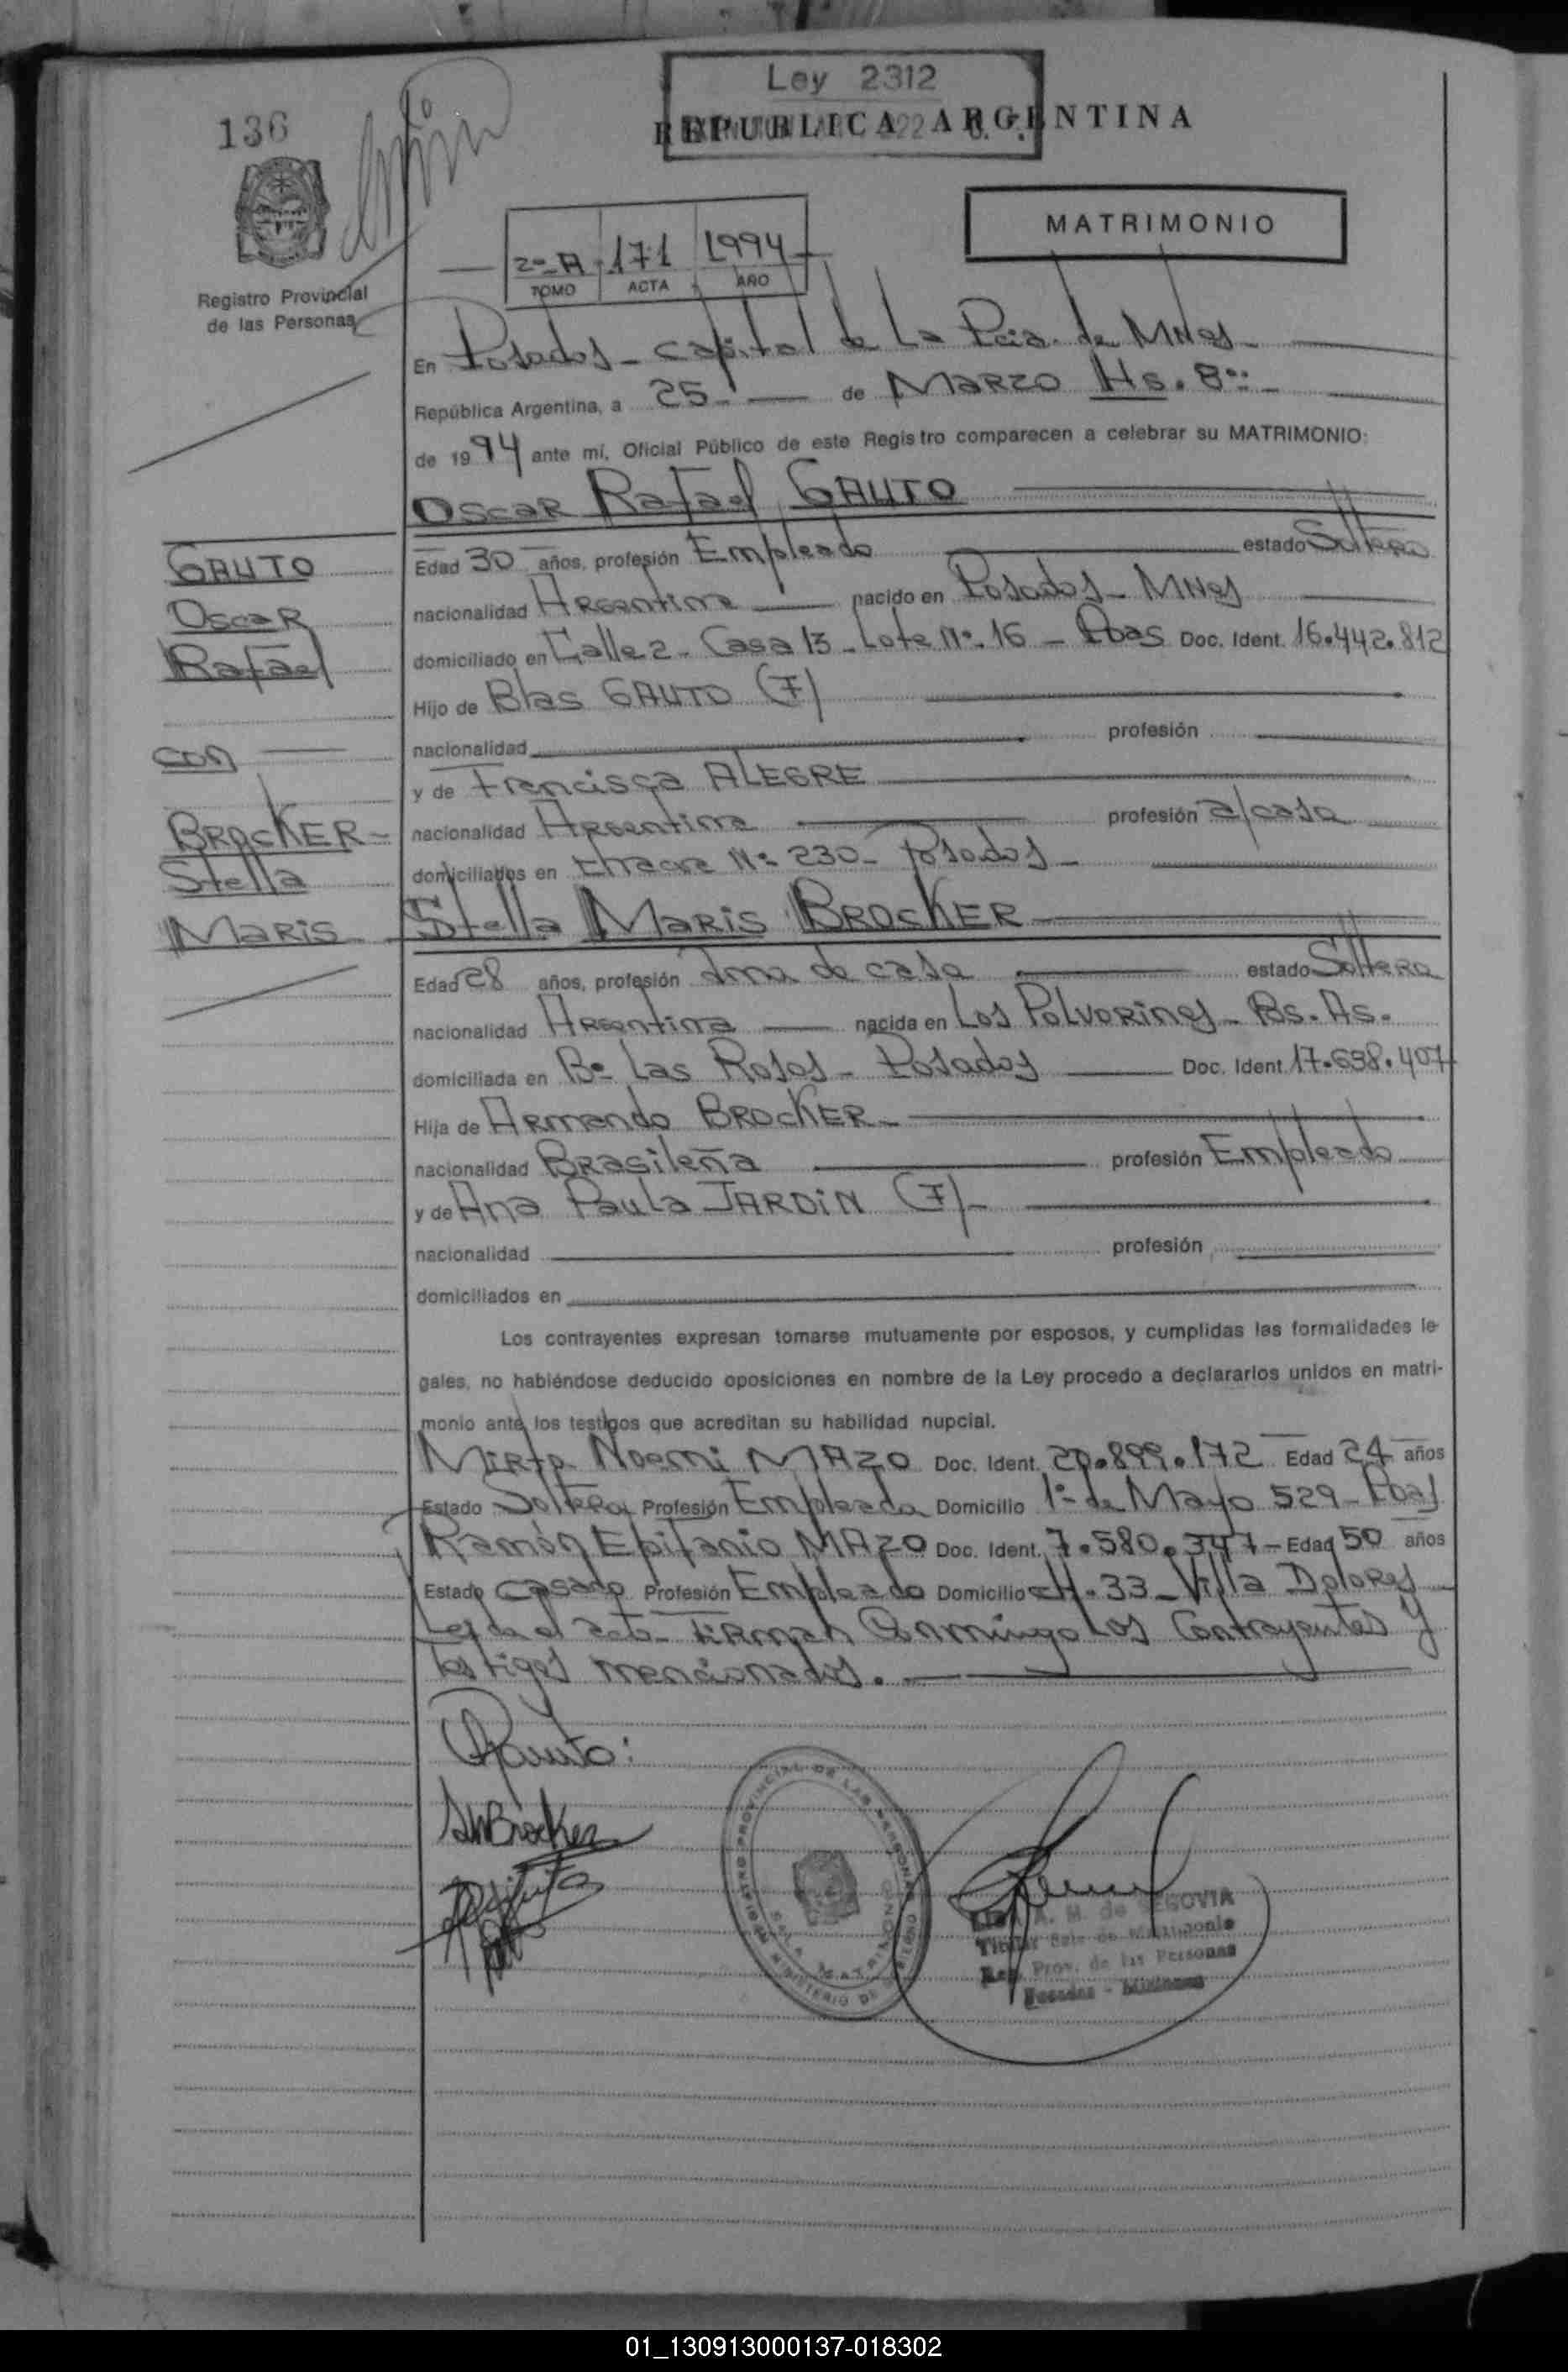 Ley 2312
136
REPUBLICA ARGENTINA
MATRIMONIO
2º-A 171 1994
TOMO ACTA AÑO
Registro Provincial
de las Personas
En Posadas - capital de La Pcia. de Mnes-
República Argentina, a 25.- de Marzo Hs. 8:
de 1994 ante mí, Oficial Público de este Registro comparecen a celebrar su MATRIMONIO:
Oscar Rafael GAUTO
GAUTO
Oscar
Rafael
con
BROCKER-
Stella
Maris
Edad 30 años, profesión Empleado estado Soltero
nacionalidad Argentina nacido en Posadas - Mnes
domiciliado en Calle 2 - Casa 13 - Lote Nº 16 - Pdas Doc. Ident. 16.442.812
Hijo de Blas GAUTO (F)
nacionalidad profesión
y de Francisca ALEGRE
nacionalidad Argentina profesión a/casa
domiciliados en Chacra Nº 230 - Posadas -
Stella Maris BROCKER
Edad 28 años, profesión Ama de casa estado Soltera
nacionalidad Argentina nacida en Los Polvorines - Bs. As.
domiciliada en Bº Las Rosas - Posadas Doc. Ident. 17.638.407
Hija de Armando BROCKER-
nacionalidad Brasileña profesión Empleado
y de Ana Paula JARDIN (F)-
nacionalidad profesión
domiciliados en
Los contrayentes expresan tomarse mutuamente por esposos, y cumplidas las formalidades le-
gales, no habiéndose deducido oposiciones en nombre de la Ley procedo a declararlos unidos en matri-
monio ante los testigos que acreditan su habilidad nupcial.
Mirta Noemi MAZO Doc. Ident. 20.899.172 Edad 24 años
Estado Soltera Profesión Empleada Domicilio 1º de Mayo 529 - Pdas
Ramón Epifanio MAZO Doc. Ident. 7.580.347 - Edad 50 años
Estado Casado Profesión Empleado Domicilio CH. 33 - Villa Dolores
Leída el acta - Firman Conmigo Los Contrayentes y
Testigos mencionados.
Gauto:
SMBrocker
REGISTRO PROVINCIAL DE LAS PERSONAS
SALA MATRIMONIO
MINISTERIO DE GOBIERNO
A. M. de SEGOVIA
Titular Sala de Matrimonio
Reg. Prov. de las Personas
Posadas - Misiones
01_130913000137-018302